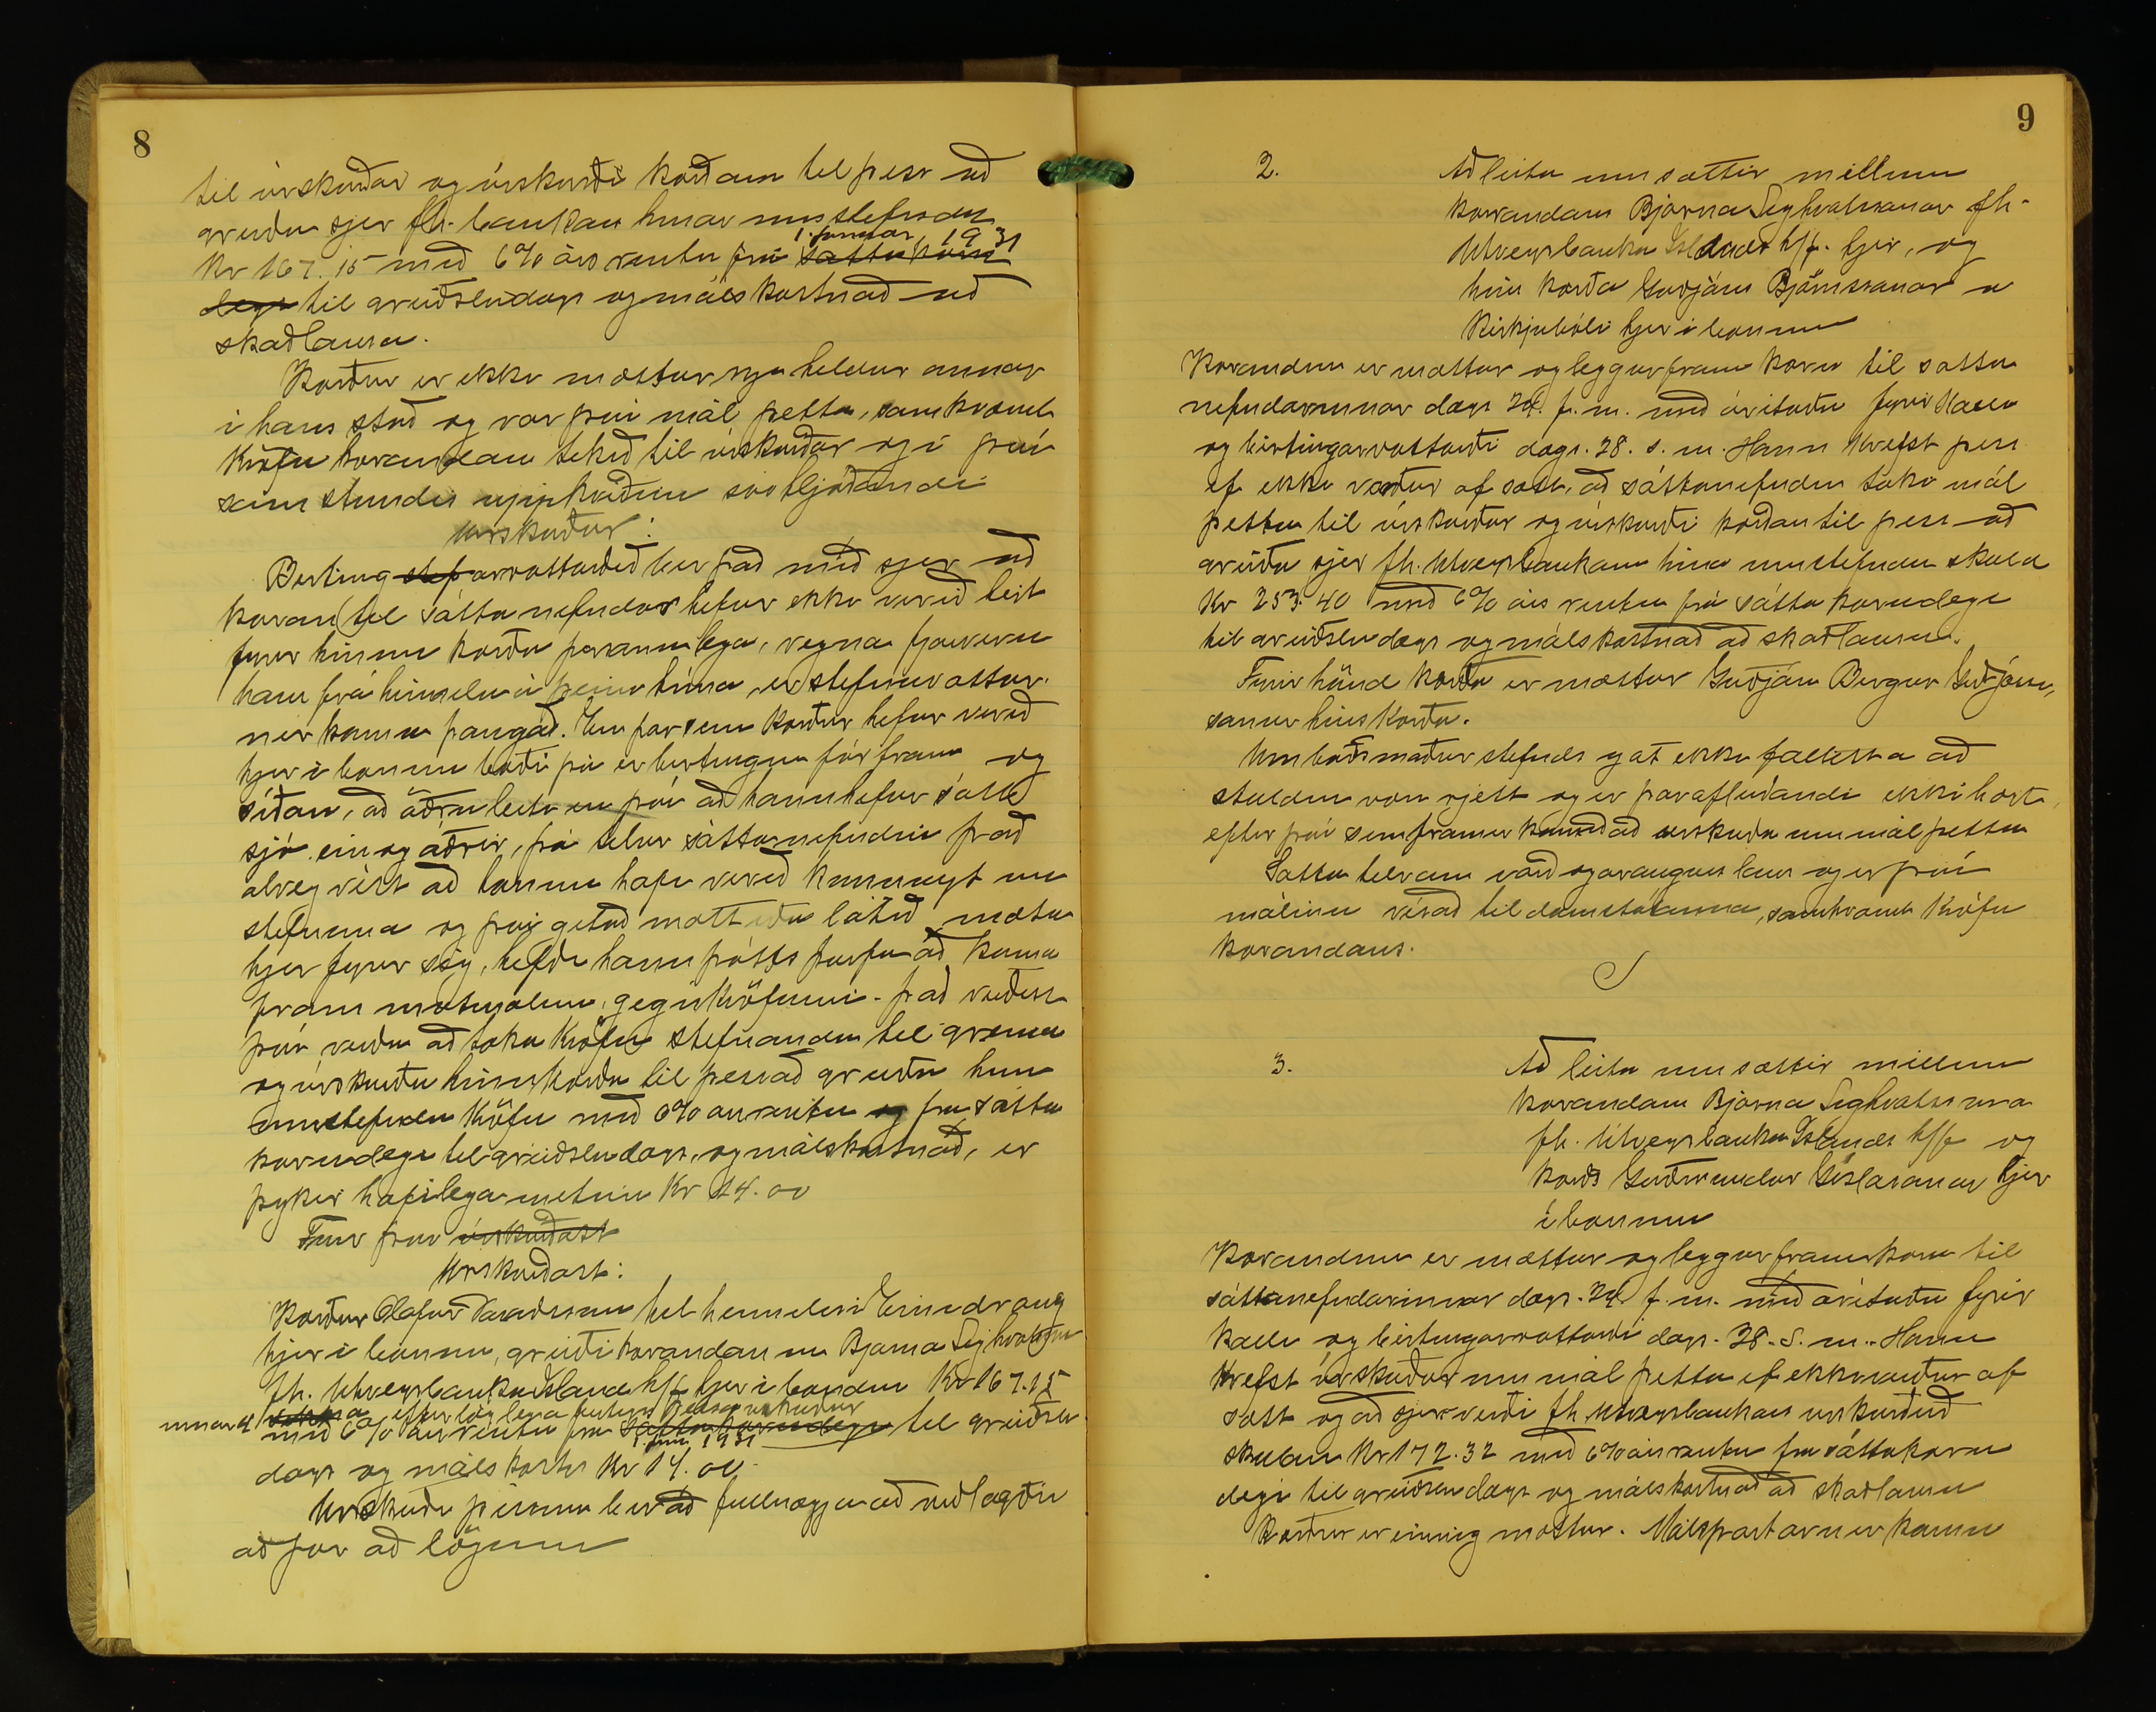 8
til úrskurðar og úrskurði kærðan til þess að
greiða sjer fh. bankans hinar umstefndu
1. janúar 1931
Kr 167.15 með 6% árs rentu frá sáttakæru
degi til greiðsludags og málskostnað að
skaðlausu.
Kærður er ekki mættur nje heldur annar
í hans stað og var því mál þetta, samkvæmt
kröfu kærandans tekið til úrskurðar og í því
svohljóðandi
Úrskurður:
Birting stef arvottorðið ber það með sjer að
kæran til sáttanefndar hefur ekki verið birt
fyrir hinum kærða persónulega, vegna fjarveru
hans frá heimilinu á þeim tíma, er stefnuvottar-
nir komu þangað. En þar sem kærður hefur verið
hjer í bænum bæði þá er birtingin fór fram og
síðan, að öðru leiti en því að hann hefur sótt
sjó eins og aðrir, þá telur sáttanefndin það
alveg víst að honum hafi verið kunnugt um
stefnuna og því getað mætt eða látið mæta
hjer fyrir sig, hefði hann þótts þurfa að koma
fram mótmælum gegn kröfunni. Það
því verða að taka kröfu stefnanda til greina
og úrskurða hinn kærða til þess að greiða hina
umstefndu kröfu með 6% ársrentu og frá sátta
kærudegi til greiðsludags, og málskostnað, er
þykir hæfilega metinn Kr 14.00
Fyrir því úrskurðast
Úrskurðast:
Kærður Ólafur til heimilis í Eindrang
hjer í bænum, greiði kærandanum Bjarna Sighvatssyni
fh. Útvegsbanka Íslands h/f hjer í bænum Kr 167.15
innan 4 vikna eftir löglega birtingu þessa úrskurðar
með 6% ársrentu frá sáttakærudegi til greiðslu
1. jan. 1931
dags og málskostn Kr 14.00.
Úrskurði þessum ber að fullnægja að viðlagðri
aðför að lögum
9
2.
Að leita um sættir millum
kærandans Bjarna Sighvatssonar fh.
Útvegsbanka Íslands h/f. hjer, og
hins kærða Guðjóns Björnssonar á
Kirkjubóli hjer í bænum
Kærandinn er mættur og leggur fram kæru til sátta
nefndarinnar dags 24. f. m. með áritaðri fyrir kalli
og birtingarvottorði dags. 28. s. m. Hann krefst þess
ef ekki verður af sætt, að sáttanefndin taki mál
þetta til úrskurðar og úrskurði kærðan til þess að
greiða sjer fh. Útvegsbankans hina umstefndu skuld
Kr 253.40 með 6% árs rentu frá sáttakærudegi
til greiðsludags og málskostnað að skaðlausu.
Fyrir hönd kærða er mættur Guðjón Bergur Guðjóns,
sonur hins kærða.
Umboðsmaður stefnds gat ekki fallist á að
skuldin væri rjett og er þaraf leiðandi ekki hægt,
eftir því sem fram er komið að úrskurða um mál þetta
Sátta tilraun varð og árangurslaus og er því
málinu vísað til dómstólanna, samkvæmt kröfu
kærandans.
3.
Að leita um sættir millum
kærandans Bjarna Sighvatssonar
fh. Útvegsbanka Íslands h/f og
kærðs Guðmundar Gíslasonar hjer
í bænum
Kærandinn er mættur og leggur fram kæru til
sáttanefndarinnar dags. 24. f. m. með áritaðri fyrir
kalli og birtingarvottorði dags. 28. s. m. Hann
krefst úrskurðar um mál þetta ef ekki verður af
sætt og að sjer verði fh. Útvegsbankans úrskurðuð
skuldin Kr 172.32 með 6% ársrentu frá sáttakæru
degi til greiðsludags og málskostnað að skaðlausu
Kærður er einnig mættur. Málspartarnir komu